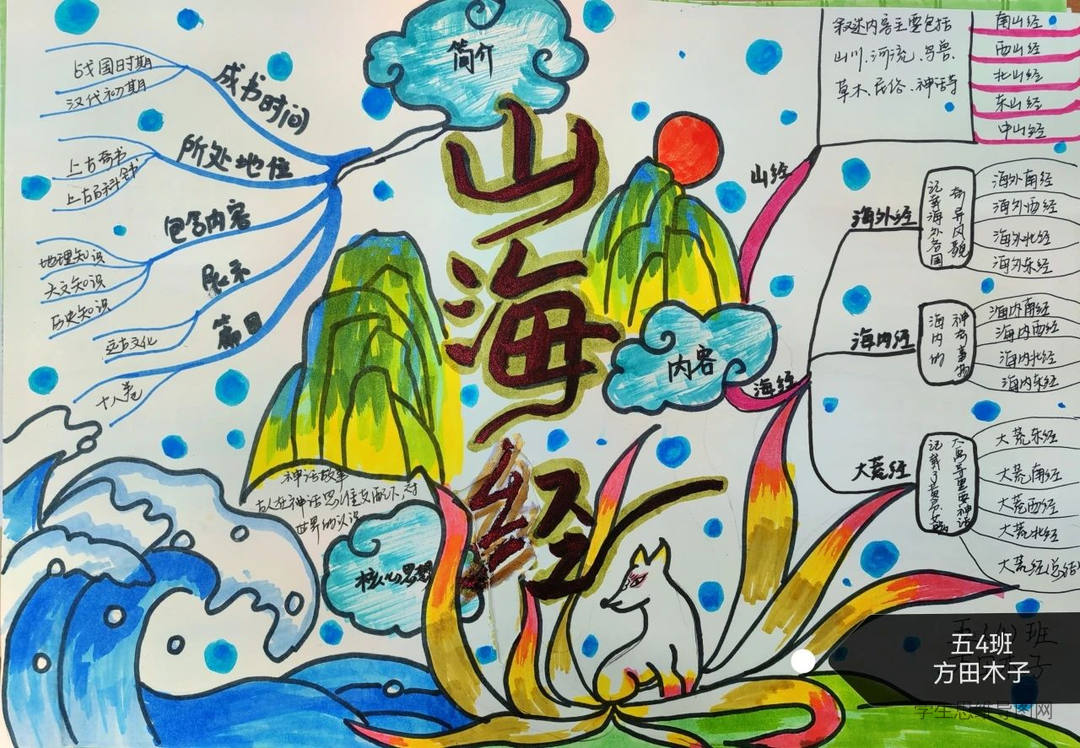 山海经
简介
成书时间
战国时期
汉代初期
所处地位
上古奇书
上古百科全书
包含内容
地理知识
天文知识
历史知识
展示
远古文化
篇目
十八卷
神话故事
世界的认识
核心思想
内容
山经
叙述内容主要包括
山川、河流、鸟兽、
草木、民俗、神话等
南山经
西山经
北山经
东山经
中山经
海经
海外经
记载海外各国
奇异风貌
海外南经
海外西经
海外北经
海外东经
海内经
海内的
神奇事物
海内南经
海内西经
海内北经
海内东经
大荒经
大荒东经
大荒南经
大荒西经
大荒北经
五4班
方田木子
学生思维导图网